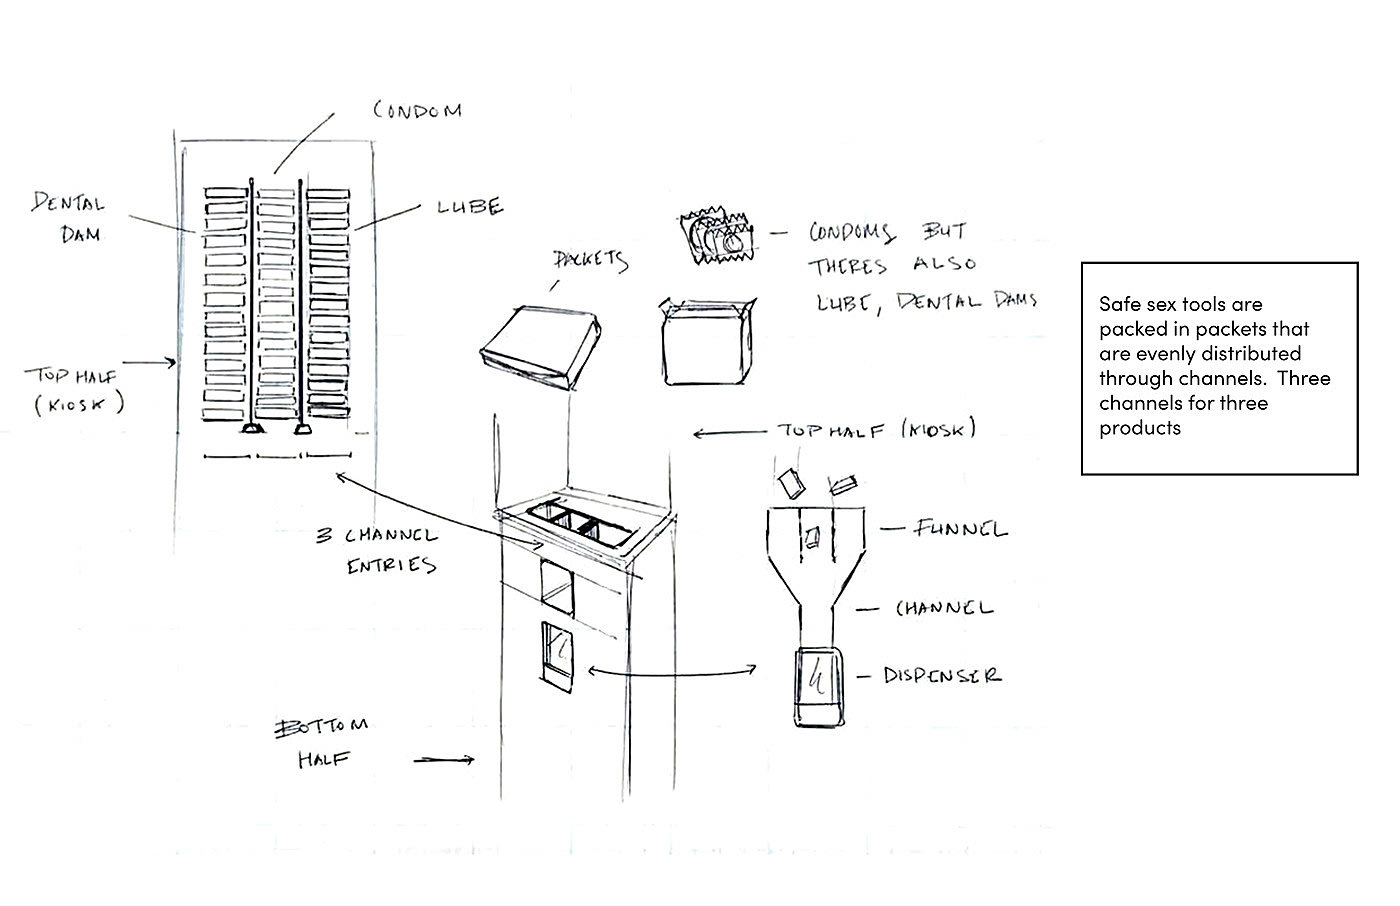 CONDOM
DENTAL
DAM
LUBE
TOP HALF
(KIOSK)
PACKETS
CONDOMS BUT
THERES ALSO
LUBE, DENTAL DAMS
Safe sex tools are
packed in packets that
are evenly distributed
through channels. Three
channels for three
products
TOP HALF (KIOSK)
3 CHANNEL
ENTRIES
FUNNEL
CHANNEL
DISPENSER
BOTTOM
HALF